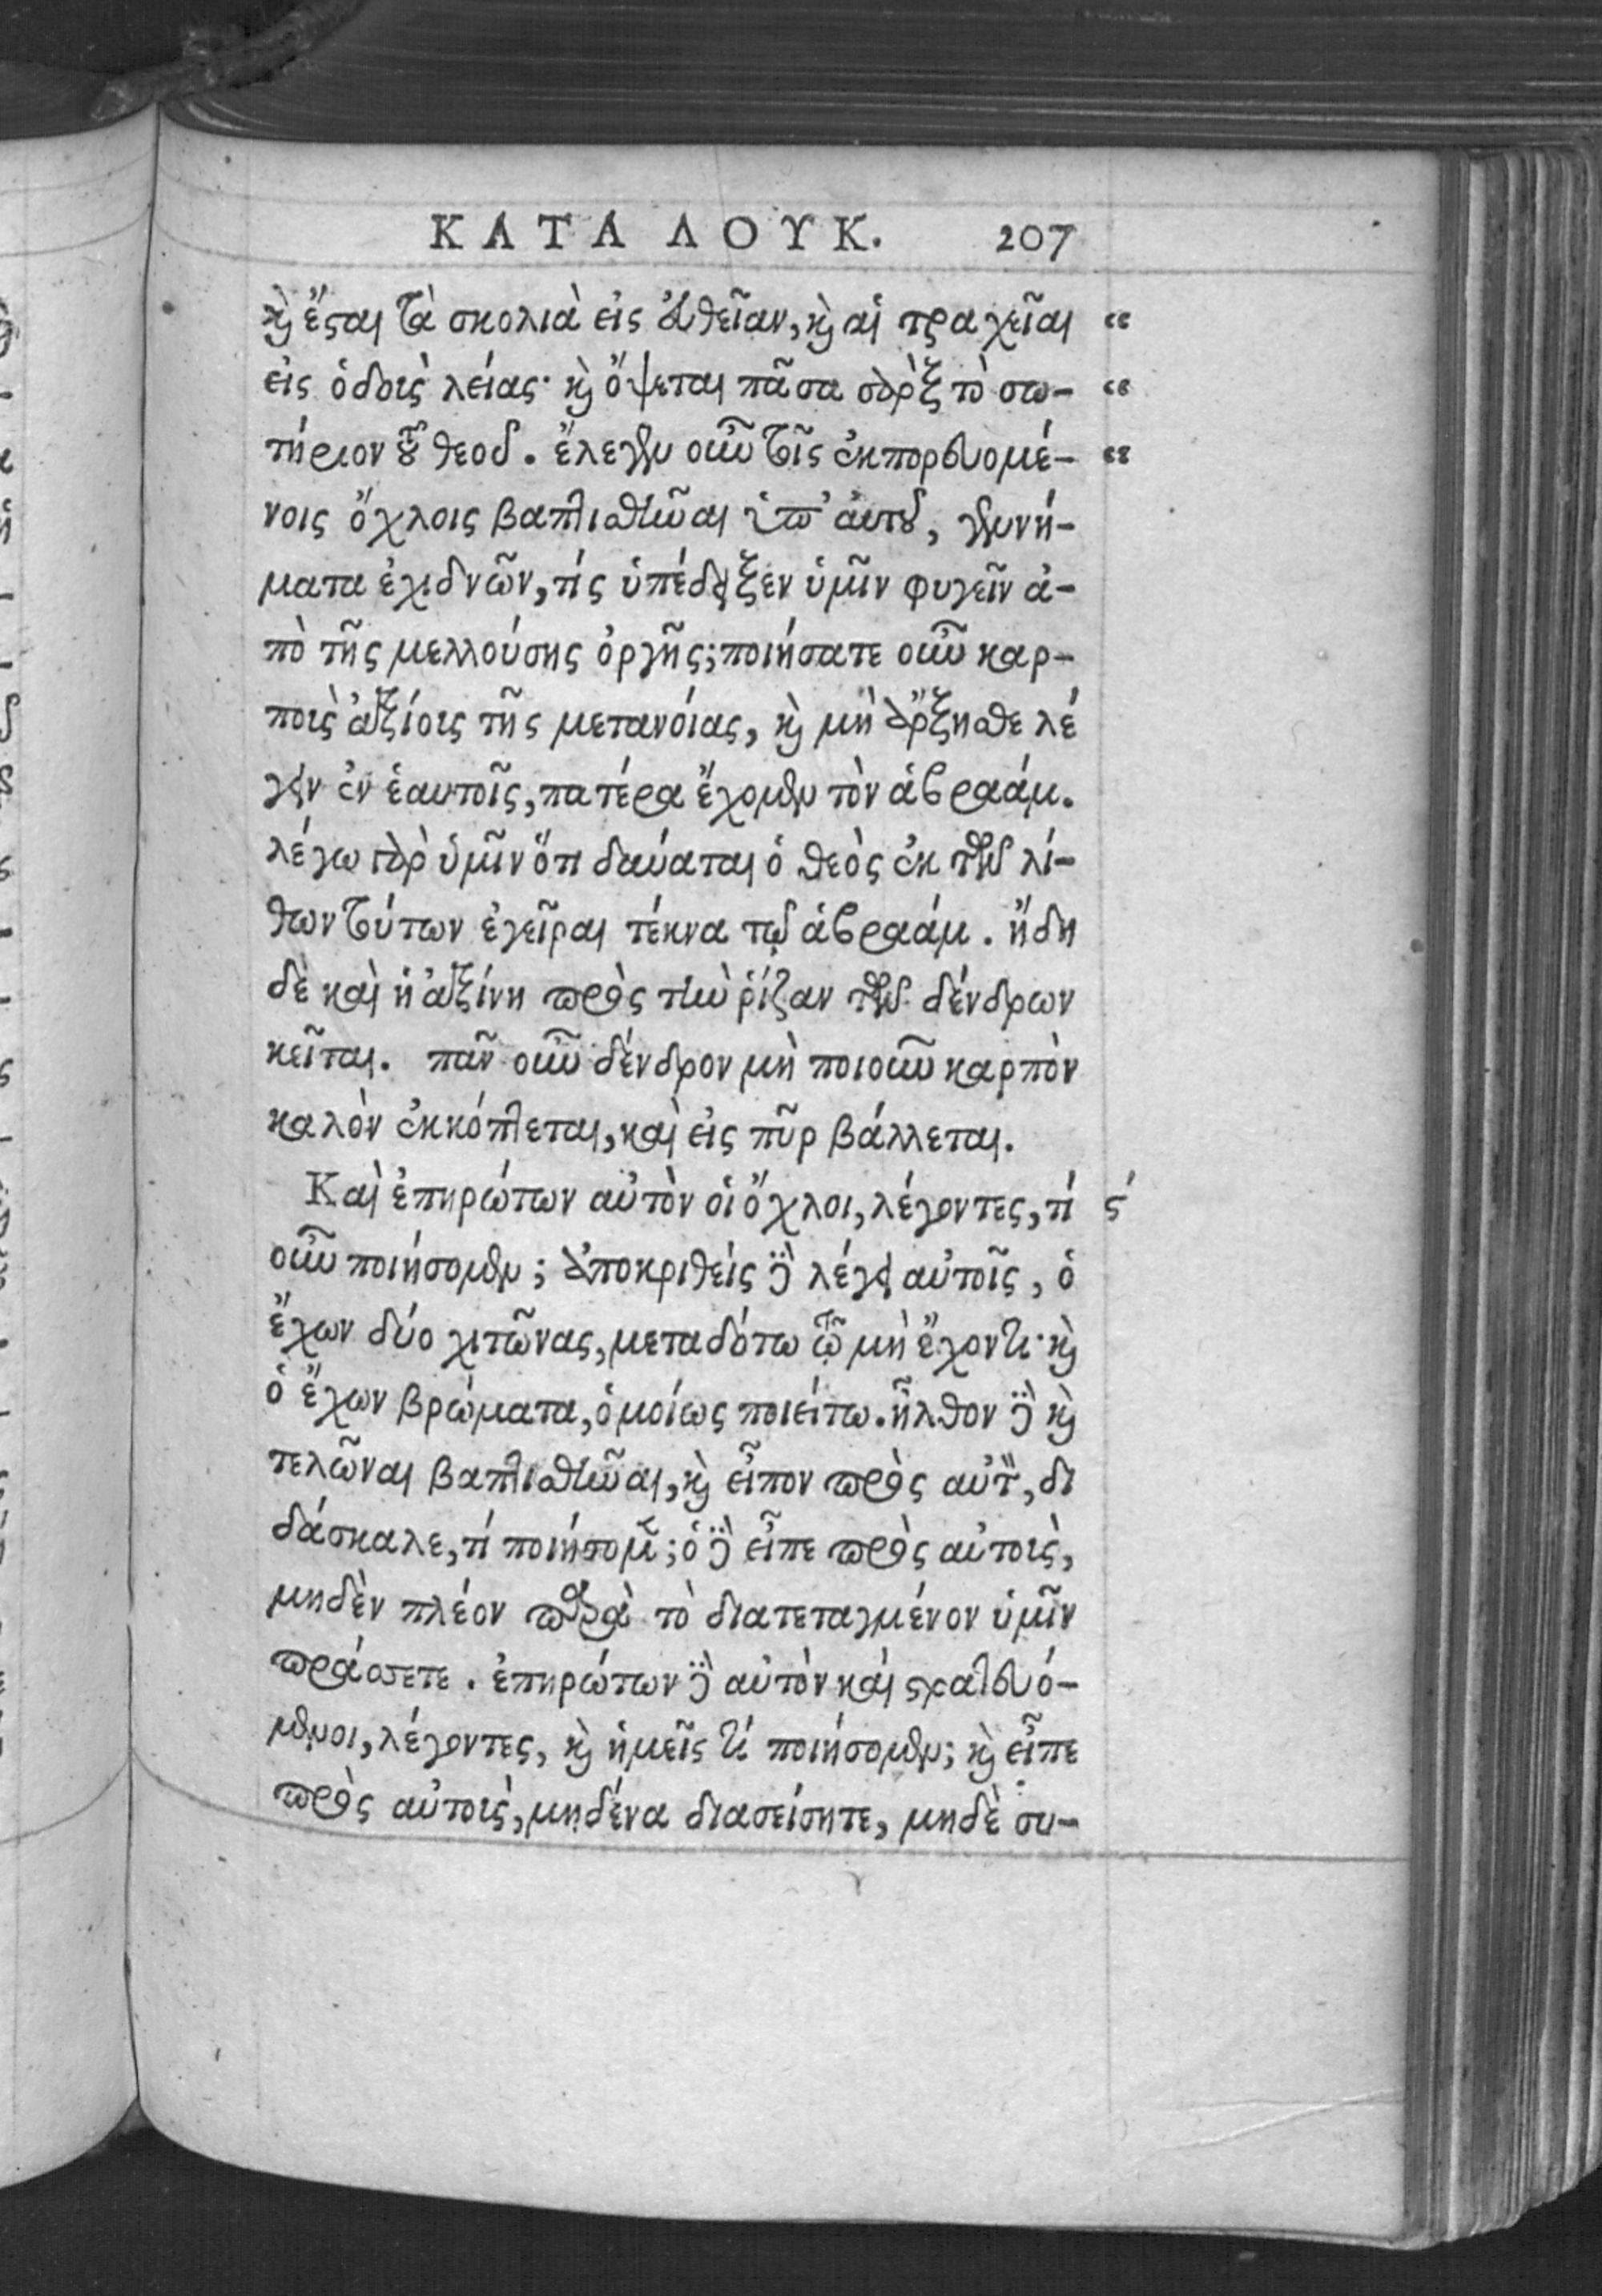 ΚΑΤΑ ΛΟΥΚ. 207
καὶ ἔσται τὰ σκολιὰ εἰς εὐθεῖαν, καὶ αἱ τραχεῖαι “
εἰς ὁδοὺς λείας· καὶ ὄψεται πᾶσα σὰρξ τὸ σω- “
τήριον τοῦ θεοῦ. ἔλεγεν οὖν τοῖς ἐκπορευομέ- “
νοις ὄχλοις βαπτισθῆναι ὑπ’ αὐτοῦ, γεννή-
ματα ἐχιδνῶν, τίς ὑπέδειξεν ὑμῖν φυγεῖν ἀ-
πὸ τῆς μελλούσης ὀργῆς; ποιήσατε οὖν καρ-
ποὺς ἀξίους τῆς μετανοίας, καὶ μὴ ἄρξησθε λέ
γειν ἐν ἑαυτοῖς, πατέρα ἔχομεν τὸν ἀβραάμ.
λέγω γὰρ ὑμῖν ὅτι δύναται ὁ θεὸς ἐκ τῶν λί-
θων τούτων ἐγεῖραι τέκνα τῷ ἀβραάμ. ἤδη
δὲ καὶ ἡ ἀξίνη πρὸς τὴν ῥίζαν τῶν δένδρων
κεῖται. πᾶν οὖν δένδρον μὴ ποιοῦν καρπὸν
καλὸν ἐκκόπτεται, καὶ εἰς πῦρ βάλλεται.
Καὶ ἐπηρώτων αὐτὸν οἱ ὄχλοι, λέγοντες, τί ϛ΄
οὖν ποιήσομεν; ἀποκριθεὶς δὲ λέγει αὐτοῖς, ὁ
ἔχων δύο χιτῶνας, μεταδότω τῷ μὴ ἔχοντι· καὶ
ὁ ἔχων βρώματα, ὁμοίως ποιείτω. ἦλθον δὲ καὶ
τελῶναι βαπτισθῆναι, καὶ εἶπον πρὸς αὐτὸν, δι
δάσκαλε, τί ποιήσομεν; ὁ δὲ εἶπε πρὸς αὐτοὺς,
μηδὲν πλέον παρὰ τὸ διατεταγμένον ὑμῖν
πράσσετε. ἐπηρώτων δὲ αὐτὸν καὶ στρατευό-
μενοι, λέγοντες, καὶ ἡμεῖς τί ποιήσομεν; καὶ εἶπε
πρὸς αὐτοὺς, μηδένα διασείσητε, μηδὲ συ-